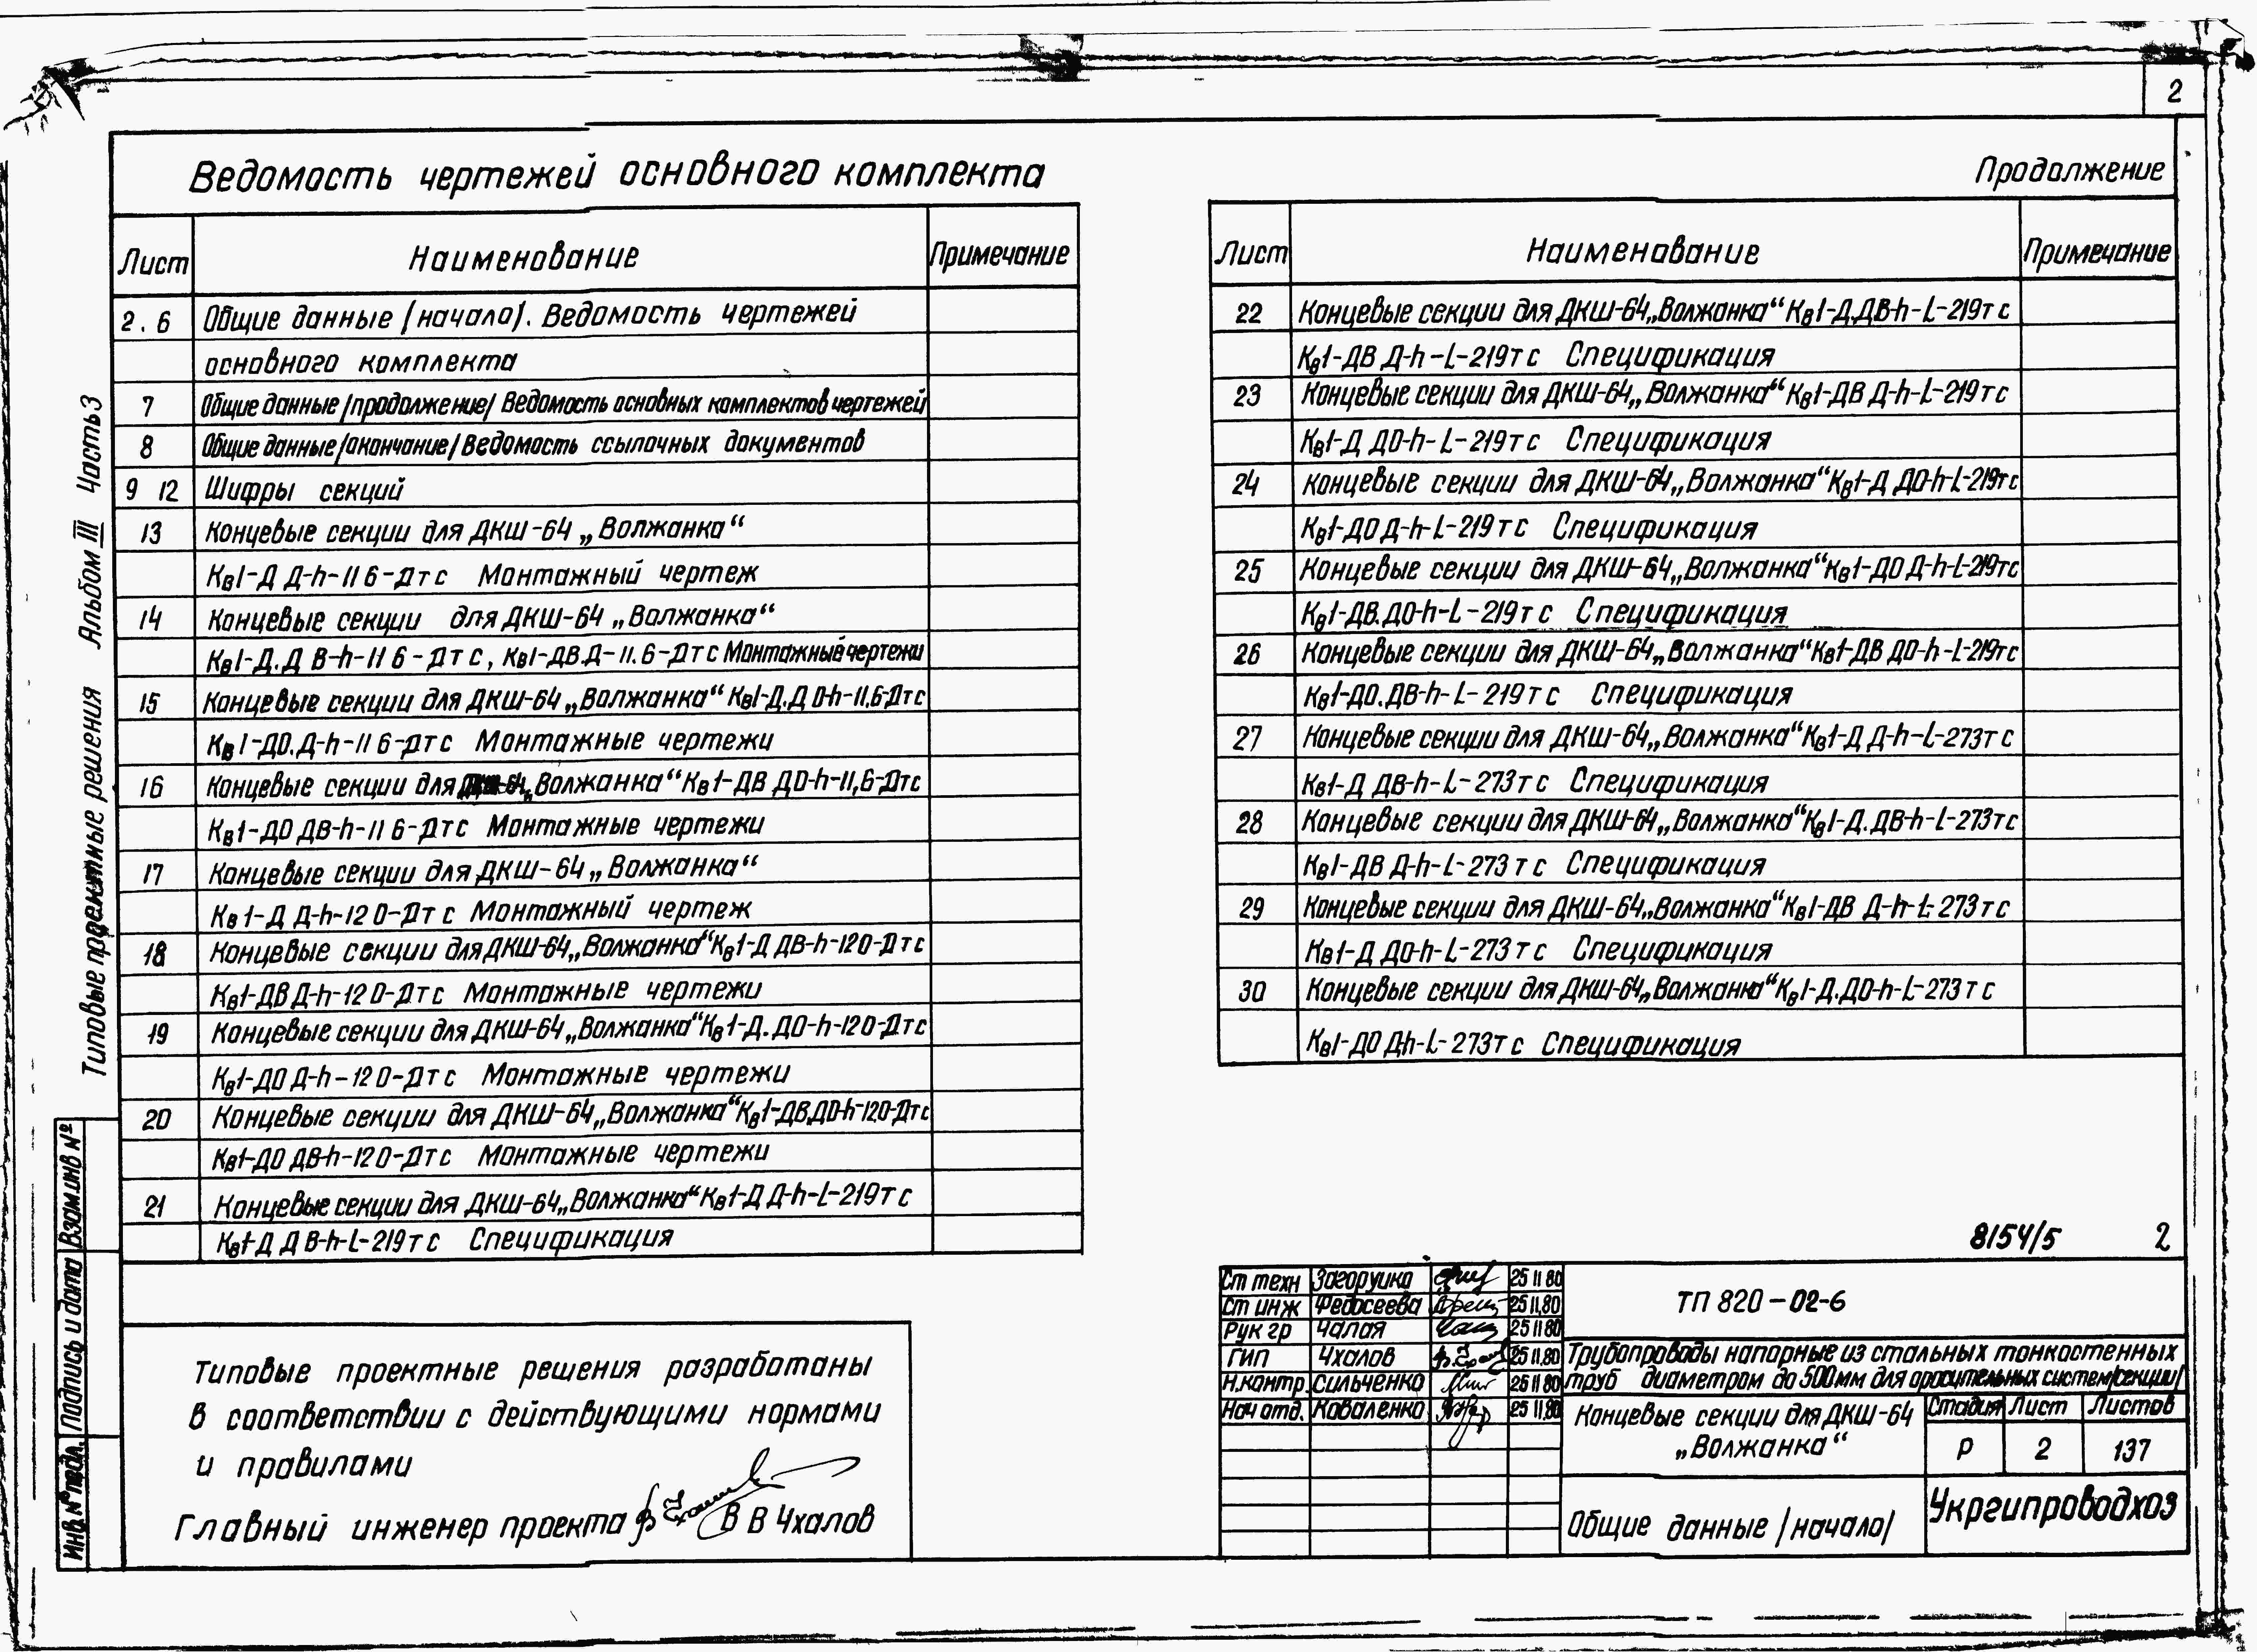 2
Ведомость чертежей основного комплекта
Лист Наименование Примечание
2. 6 Общие данные (начало). Ведомость чертежей
основного комплекта
7 Общие данные /продолжение/ Ведомость основных комплектов чертежей
8 Общие данные /окончание/ Ведомость ссылочных документов
9 12 Шифры секций
13 Концевые секции для ДКШ-64 „Волжанка“
Кв1-Д Д-h-11 6-Дт с Монтажный чертеж
14 Концевые секции для ДКШ-64 „Волжанка“
Кв1-Д.Д В-h-11 6-Дт с, Кв1-ДВ.Д-11.6-Дт с Монтажные чертежи
15 Концевые секции для ДКШ-64 „Волжанка“ Кв1-Д.Д О-h-11,6-Дт с
Кв1-ДО.Д-h-11 6-Дт с Монтажные чертежи
16 Концевые секции для ДКШ-64 „Волжанка“ Кв1-ДВ ДО-h-11,6-Дт с
Кв1-ДО ДВ-h-11 6-Дт с Монтажные чертежи
17 Концевые секции для ДКШ-64 „Волжанка“
Кв1-Д Д-h-12 0-Дт с Монтажный чертеж
18 Концевые секции для ДКШ-64 „Волжанка“ Кв1-Д ДВ-h-12 0-Дт с
Кв1-ДВ Д-h-12 0-Дт с Монтажные чертежи
19 Концевые секции для ДКШ-64 „Волжанка“ Кв1-Д. ДО-h-12 0-Дт с
Кв1-ДО Д-h-12 0-Дт с Монтажные чертежи
20 Концевые секции для ДКШ-64 „Волжанка“ Кв1-ДВ.ДО-h-12.0-Дт с
Кв1-ДО ДВ-h-12 0-Дт с Монтажные чертежи
21 Концевые секции для ДКШ-64 „Волжанка“ Кв1-Д Д-h-L-219т с
Кв1-Д Д В-h-L-219т с Спецификация
Продолжение
Лист Наименование Примечание
22 Концевые секции для ДКШ-64 „Волжанка“ Кв1-Д.ДВ-h-L-219т с
Кв1-ДВ Д-h-L-219т с Спецификация
23 Концевые секции для ДКШ-64 „Волжанка“ Кв1-ДВ Д-h-L-219т с
Кв1-Д ДО-h-L-219т с Спецификация
24 Концевые секции для ДКШ-64 „Волжанка“ Кв1-Д ДО-h-L-219т с
Кв1-ДО Д-h-L-219т с Спецификация
25 Концевые секции для ДКШ-64 „Волжанка“ Кв1-ДО Д-h-L-219т с
Кв1-ДВ.ДО-h-L-219т с Спецификация
26 Концевые секции для ДКШ-64 „Волжанка“ Кв1-ДВ ДО-h-L-219т с
Кв1-ДО.ДВ-h-L-219т с Спецификация
27 Концевые секции для ДКШ-64 „Волжанка“ Кв1-Д Д-h-L-273т с
Кв1-Д ДВ-h-L-273т с Спецификация
28 Концевые секции для ДКШ-64 „Волжанка“ Кв1-Д.ДВ-h-L-273т с
Кв1-ДВ Д-h-L-273 т с Спецификация
29 Концевые секции для ДКШ-64 „Волжанка“ Кв1-ДВ Д-h-L-273т с
Кв1-Д ДО-h-L-273 т с Спецификация
30 Концевые секции для ДКШ-64 „Волжанка“ Кв1-Д.ДО-h-L-273 т с
Кв1-ДО Д-h-L-273т с Спецификация
Типовые проектные решения Альбом III Часть 3
Инв. № подл. Подпись и дата Взам инв №
Типовые проектные решения разработаны
в соответствии с действующими нормами
и правилами
Главный инженер проекта В В Чхалов
8154/5 2
Ст техн Загоруйко 25 11 80
Ст инж Федосеева 25 11.80
Рук гр Чалая 25 11 80
ГИП Чхалов 25 11.80
Н.контр. Сильченко 25 11 80
Нач отд. Коваленко 25 11.80
ТП 820-02-6
Трубопроводы напорные из стальных тонкостенных
труб диаметром до 500мм для оросительных систем/секции/
Концевые секции для ДКШ-64
„Волжанка“
Стадия Лист Листов
Р 2 137
Общие данные /начало/
Укргипроводхоз